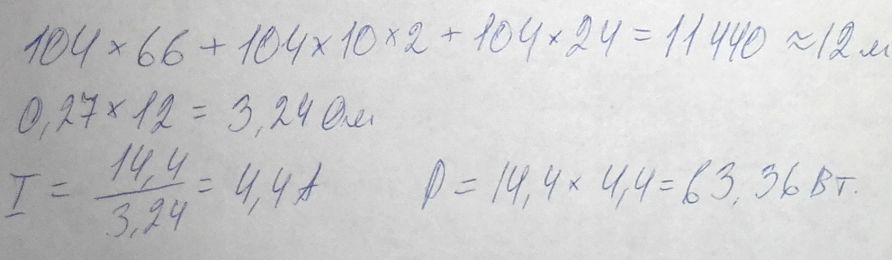 104 × 66 + 104 × 10 × 2 + 104 × 24 = 11440 ≈ 12 м
0,27 × 12 = 3,24 Ом
I = 14,4 / 3,24 = 4,4 А P = 14,4 × 4,4 = 63,36 Вт.